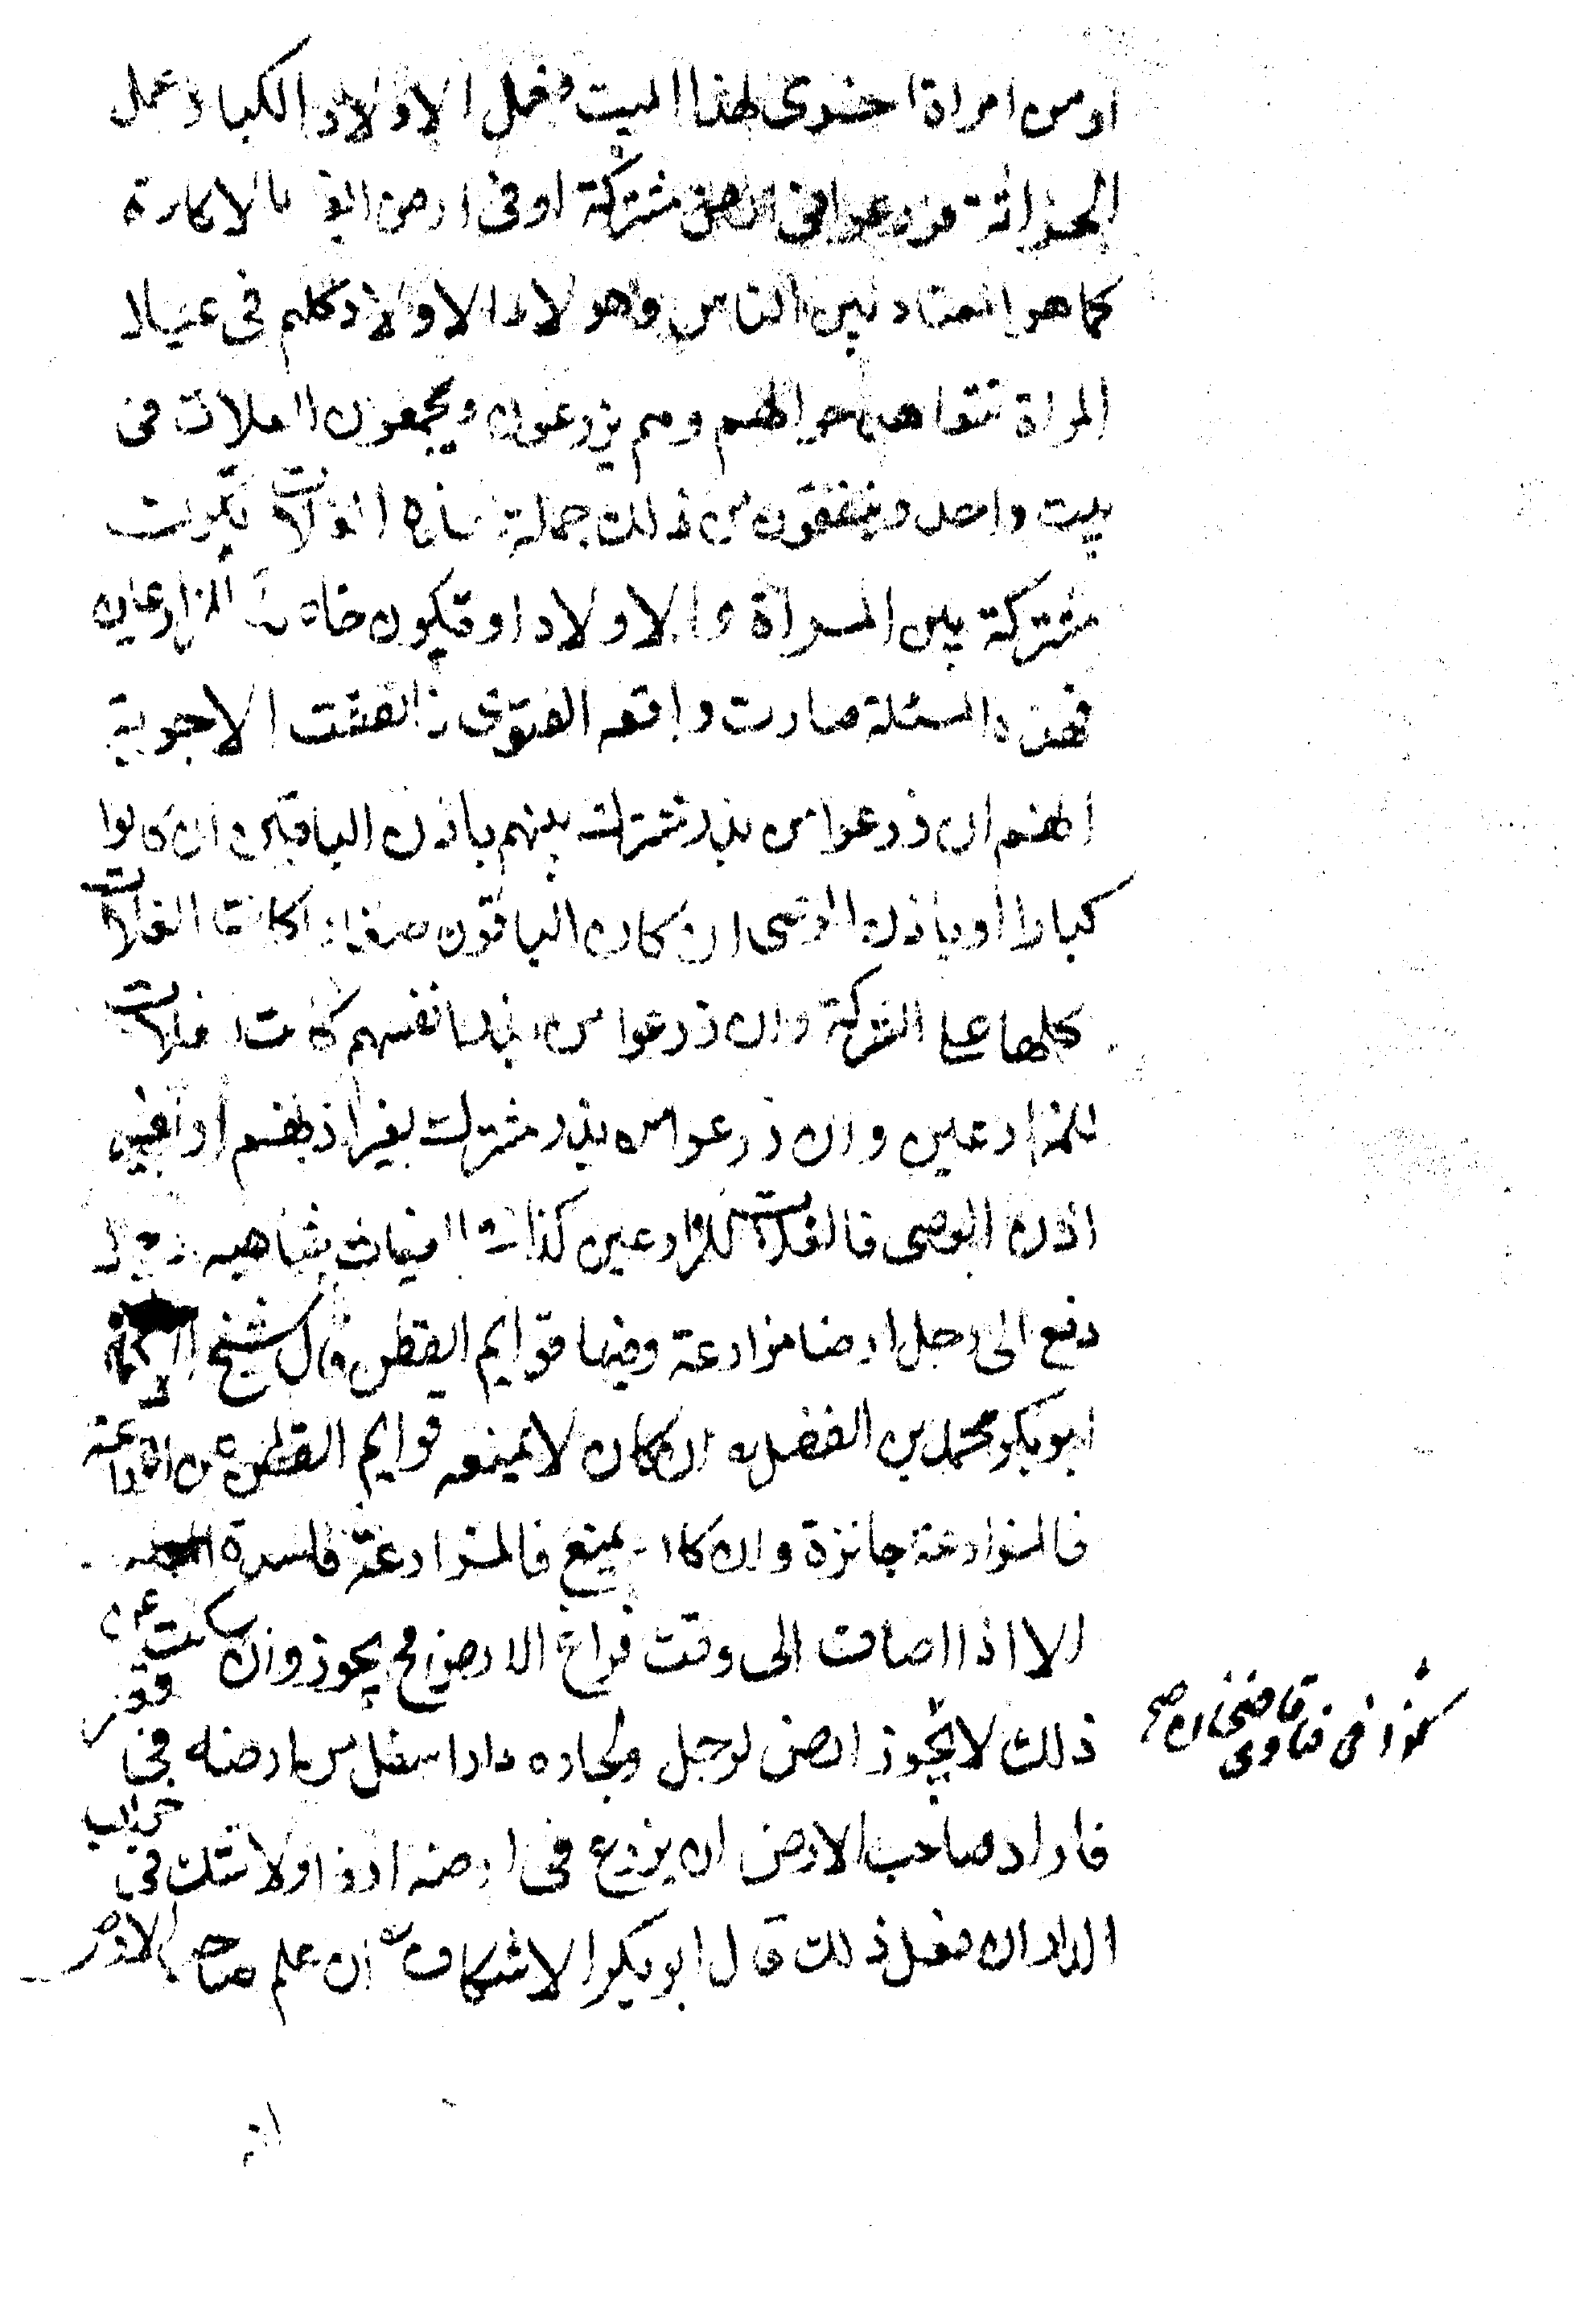 او من امراة اخرى لهذا الميت فعمل الاولاد الكبار عمل
الحراثة فزرعوا فى ارض مشتركة او فى ارض الغير بالاكارة
كما هو المعتاد بين الناس وهولاء الاولاد كلهم فى عيال
المراة تتعاهد احوالهم وهم يزرعون ويجمعون الغلات فى
بيت واحد وينفقون من ذلك جملة هذه الغلات تكون
مشتركة بين المراة والاولاد او تكون خاصة للمزارعين
فهذه المسئلة صارت واقعه الفتوى فاتفقت الاجوبة
انهم ان زرعوا من بذر مشترك بينهم باذن الباقين ان كانوا
كبارا او باذن الوصى ان كان الباقون صغارا كانت الغلات
كلها على الشركة وان زرعوا من بذر انفسهم كانت الغلات
للمزارعين وان زرعوا من بذر مشترك بغير اذنهم او بغير
اذن الوصى فالغلات للمزارعين كذا فى الغياثية رجل
دفع الى رجل ارضا مزارعة وفيها قوايم القطن قال شيخ
ابو بكر محمد بن الفضل ان كان لا يمنعه قوايم القطن عن الزراعة
فالمزارعة جائزة وان كان يمنع فالمزارعة فاسدة
الا اذا اضافت الى وقت فراغ الارض فح يجوز وان سكت عن
ذلك لا يجوز ارض لرجل ولجاره دارا سفل من ارضه فى
فاراد صاحب الارض ان يزرع فى ارضه ارزا ولا شك فى خراب
الدار ان فعل ذلك قال ابو بكر الاسكاف ان علم صاحب الارض
كذا فى فتاوى قاضيخان صح